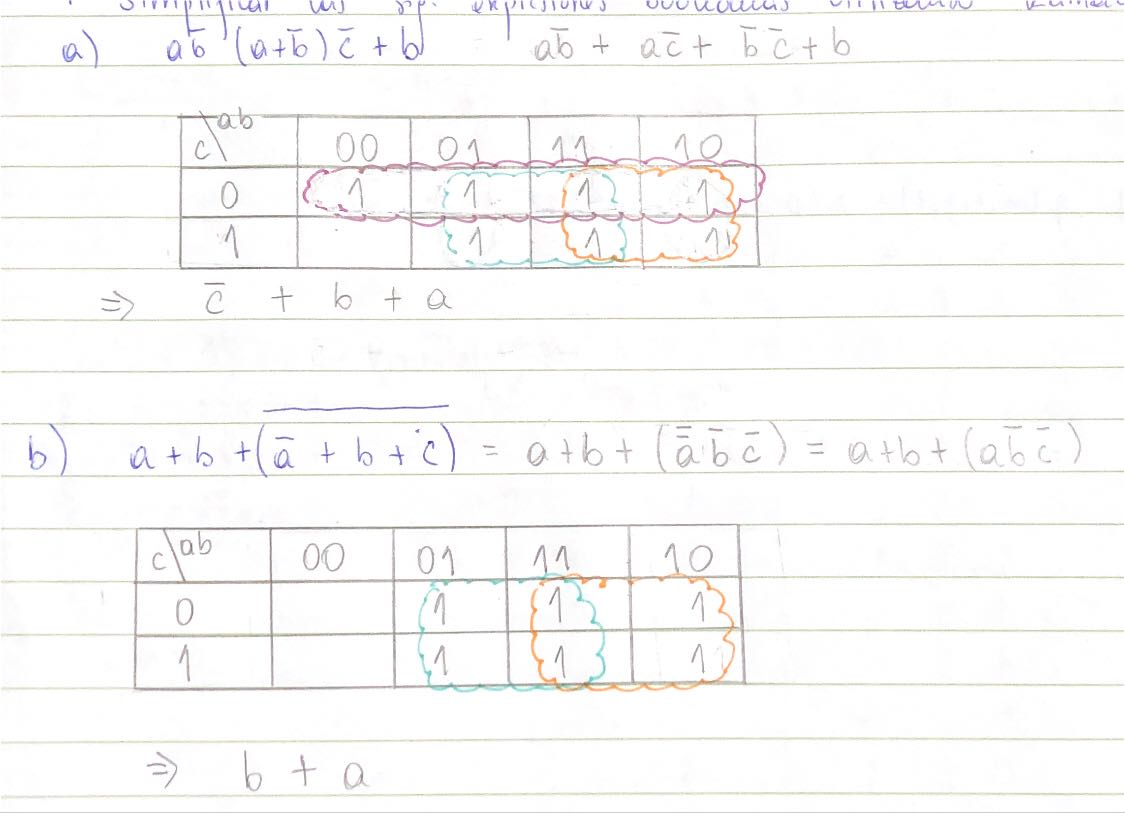 simplificar las sig. expresiones booleanas utilizando
a) ab̅ (a+b̅)c̅ + b ab̅ + ac̅ + b̅c̅ + b
c\ab 00 01 11 10
0 1 1 1 1
1 1 1 1
⇒ c̅ + b + a
b) a + b + (a̅ + b + c)̅ = a+b+ (a̿ b̅ c̅) = a+b+ (ab̅c̅)
c\ab 00 01 11 10
0 1 1 1
1 1 1 1
⇒ b + a